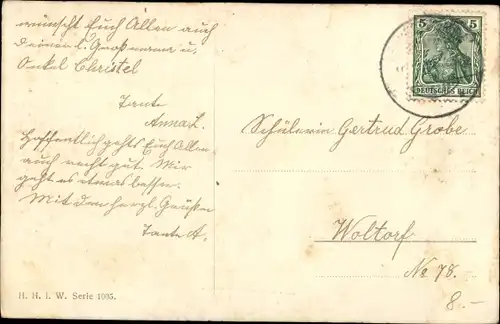 wünscht Euch Allen auch
Deinen l. Großmama u.
Onkel Christel
Tante
Anna L.
Hoffentlich gehts Euch Allen
auch recht gut. Mir
geht es etwas besser.
Mit den herzl. Grüßen
Tante A.
H. H. i. W. Serie 1095.
5 5
DEUTSCHES REICH
Schülerin Gertrud Grobe
Woltorf
No 78.
8.-